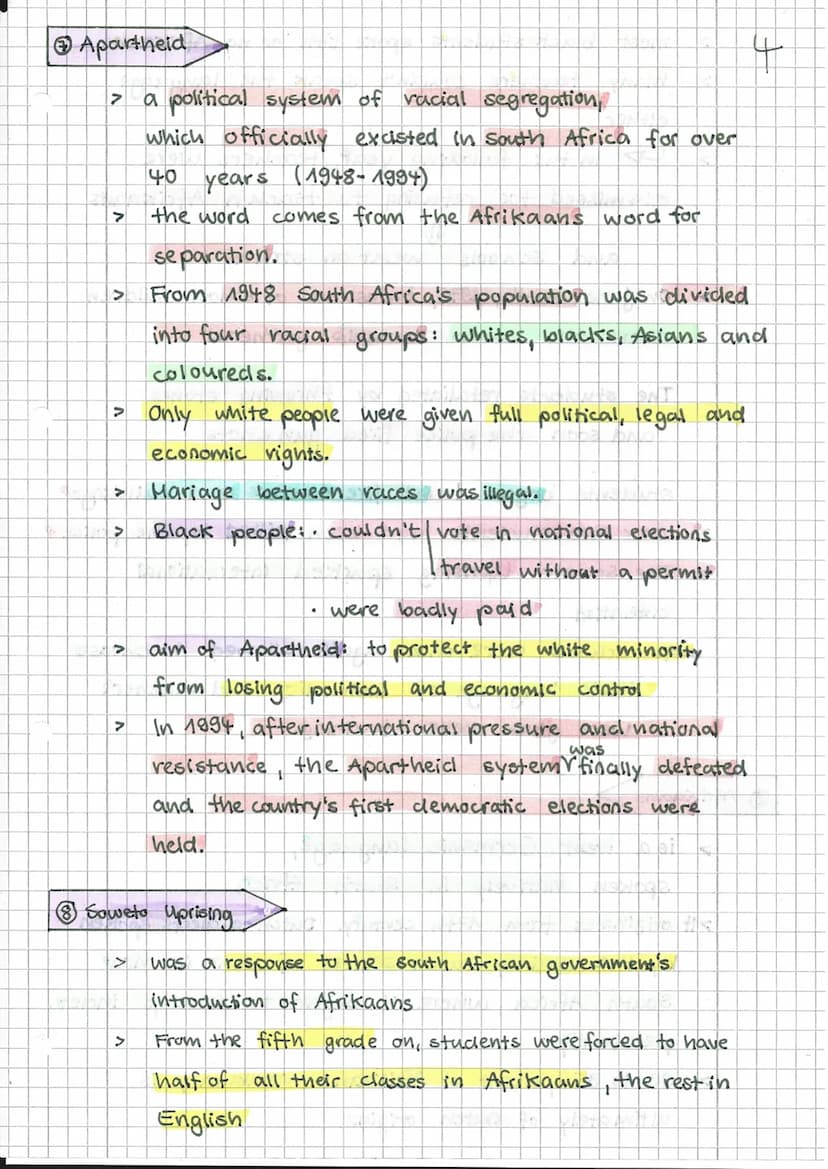 4
⑦ Apartheid
> a political system of racial segregation,
which officially excisted in South Africa for over
40 years (1948-1994)
> the word comes from the Afrikaans word for
separation.
> From 1948 South Africa's population was divided
into four racial groups: whites, blacks, Asians and
coloureds.
> Only white people were given full political, legal and
economic rights.
> Mariage between races was illegal.
> Black people: · couldn't | vote in national elections
travel without a permit
· were badly paid
> aim of Apartheid: to protect the white minority
from losing political and economic control
> In 1994, after international pressure and national
was
resistance, the Apartheid system finally defeated
and the country's first democratic elections were
held.
⑧ Soweto Uprising
> was a response to the South African government's
introduction of Afrikaans
> From the fifth grade on, students were forced to have
half of all their classes in Afrikaans, the rest in
English